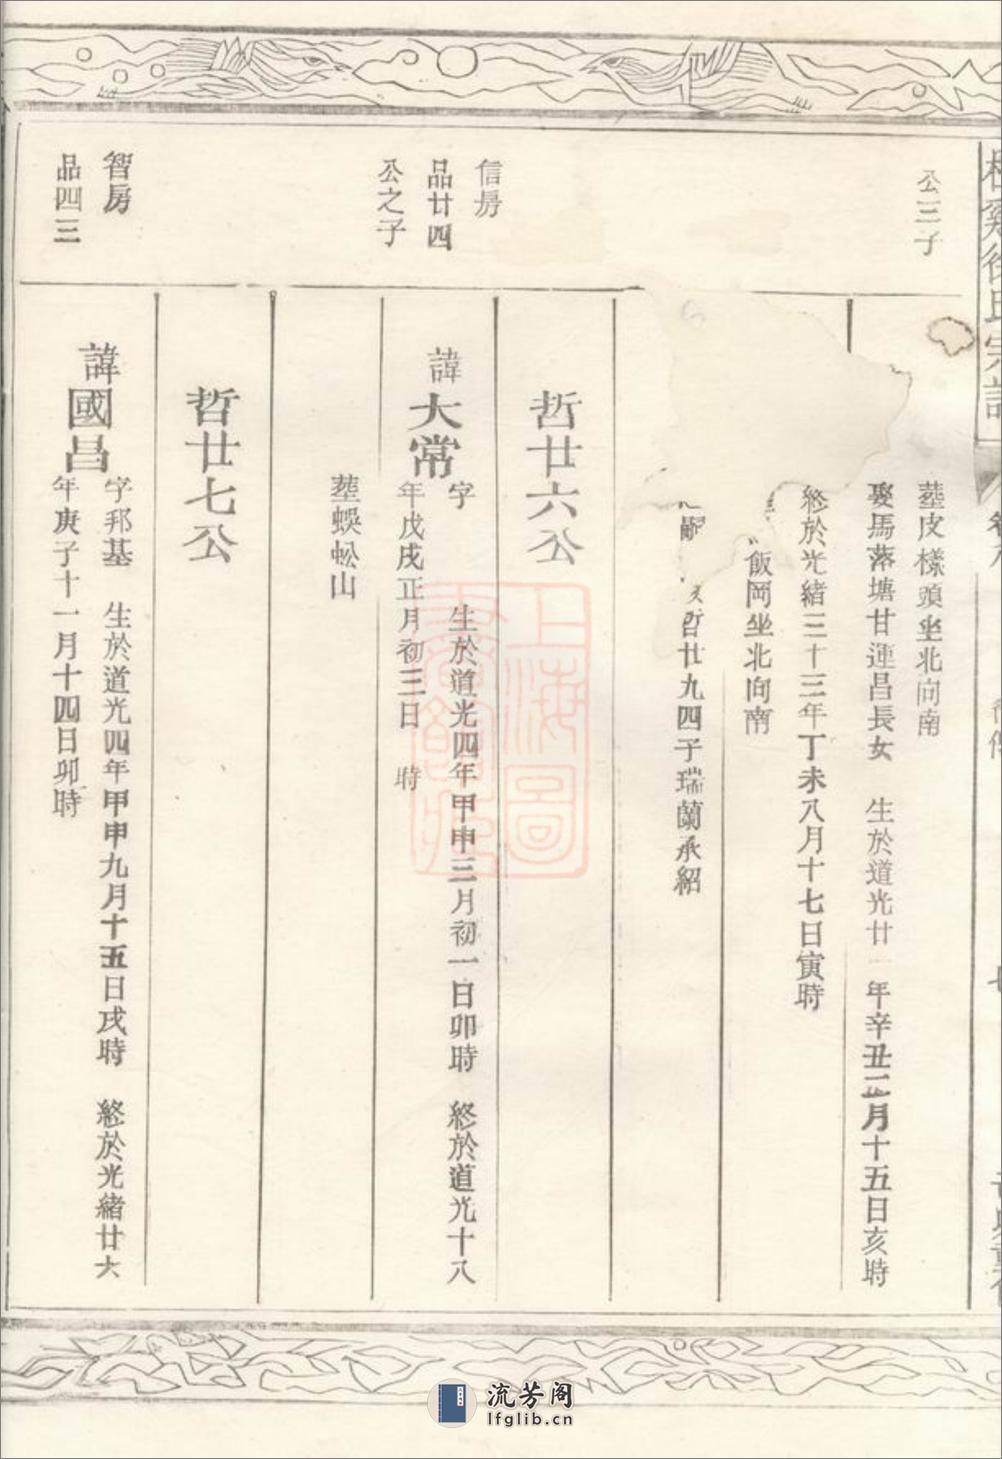 公三子
塟皮樣頭坐北向南
娶馬落塘甘連昌長女 生於道光廿一年辛丑二月十五日亥時
終於光緒三十三年丁未八月十七日寅時
飯岡坐北向南
哲廿九四子瑞蘭承紹
哲廿六公
信房
品廿四
公之子
諱大常
字 生於道光四年甲申三月初一日卯時 終於道光十八
年戊戌正月初三日 時
塟蜈蚣山
哲廿七公
智房
品四三
諱國昌
字邦基 生於道光四年甲申九月十五日戌時 終於光緒廿六
年庚子十一月十四日卯時
上海圖
書館藏
流芳阁
lfglib.cn